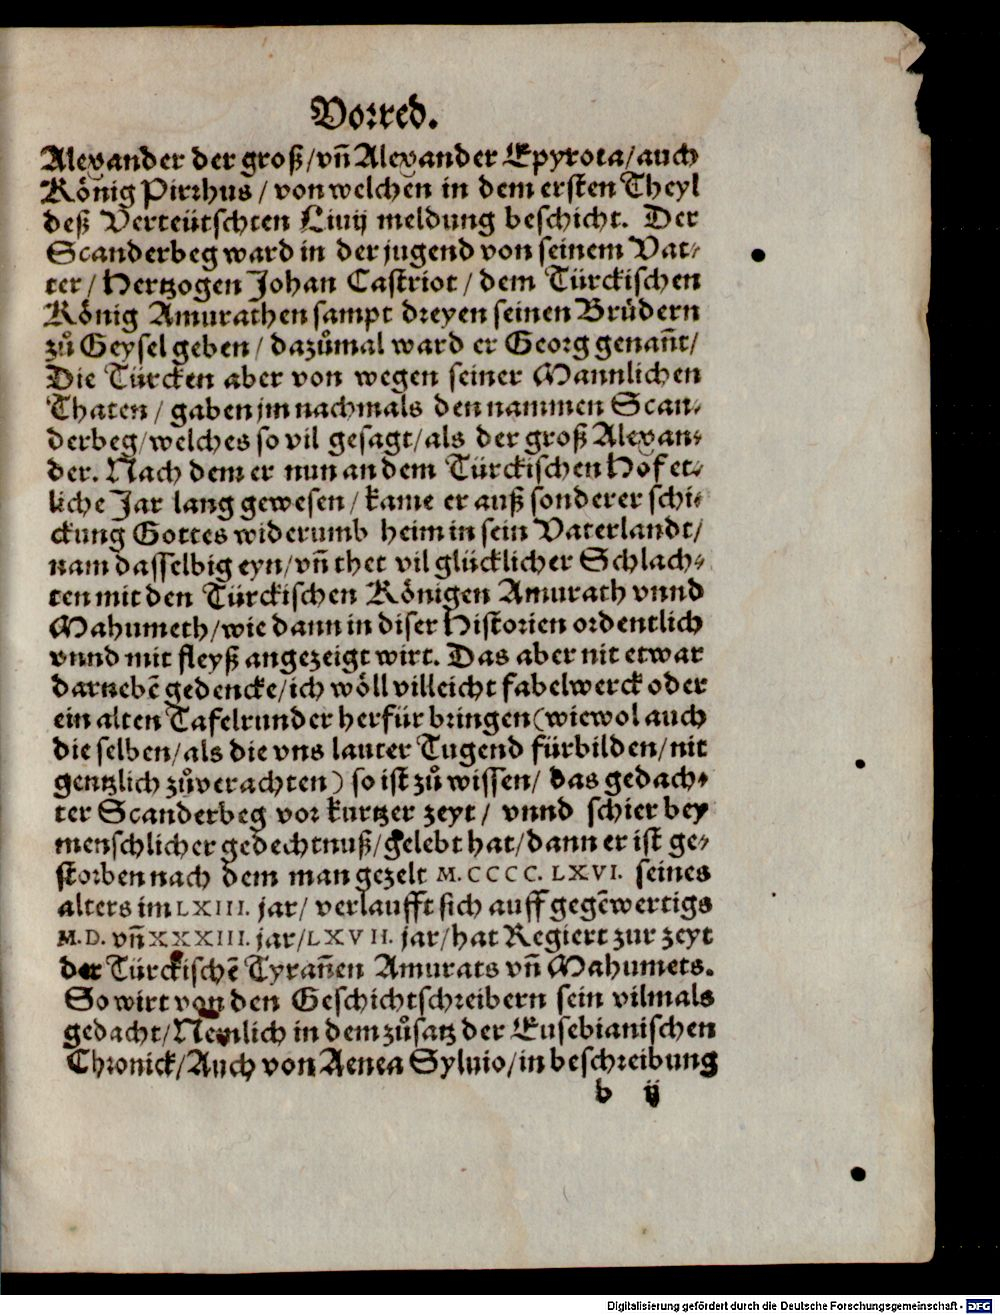 Vorred.
Alexander der groß/vñ Alexander Epyrota/auch
König Pirrhus/von welchen in dem ersten Theyl
deß Verteütschten Liuij meldung beschicht. Der
Scanderbeg ward in der jugend von seinem Vat-
ter/Hertzogen Johan Castriot/dem Türckischen
König Amurathen sampt dreyen seinen Brüdern
zů Geysel geben/dazůmal ward er Georg genañt/
Die Türcken aber von wegen seiner Mannlichen
Thaten/gaben jm nachmals den nammen Scan-
derbeg/welches so vil gesagt/als der groß Alexan-
der. Nach dem er nun an dem Türckischen Hof et-
liche Jar lang gewesen/kame er auß sonderer schi-
ckung Gottes widerumb heim in sein Vaterlandt/
nam dasselbig eyn/vñ thet vil glücklicher Schlach-
ten mit den Türckischen Königen Amurath vnnd
Mahumeth/wie dann in diser Historien ordentlich
vnnd mit fleyß angezeigt wirt. Das aber nit etwar
darnebẽ gedencke/ich wöll villeicht fabelwerck oder
ein alten Tafelrunder herfür bringen(wiewol auch
die selben/als die vns lauter Tugend fürbilden/nit
gentzlich zůverachten) so ist zů wissen/das gedach-
ter Scanderbeg vor kurtzer zeyt/vnnd schier bey
menschlicher gedechtnuß/gelebt hat/dann er ist ge-
storben nach dem man gezelt M.CCCC.LXVI. seines
alters im LXIII. jar/verlaufft sich auff gegẽwertigs
M.D. vñ XXXIII. jar/LXVII. jar/hat Regiert zur zeyt
der Türckischẽ Tyrañen Amurats vñ Mahumets.
So wirt von den Geschichtschreibern sein vilmals
gedacht/Nemlich in dem zůsatz der Eusebianischen
Chronick/Auch von Aenea Syluio/in beschreibung
b ij
Digitalisierung gefördert durch die Deutsche Forschungsgemeinschaft - DFG